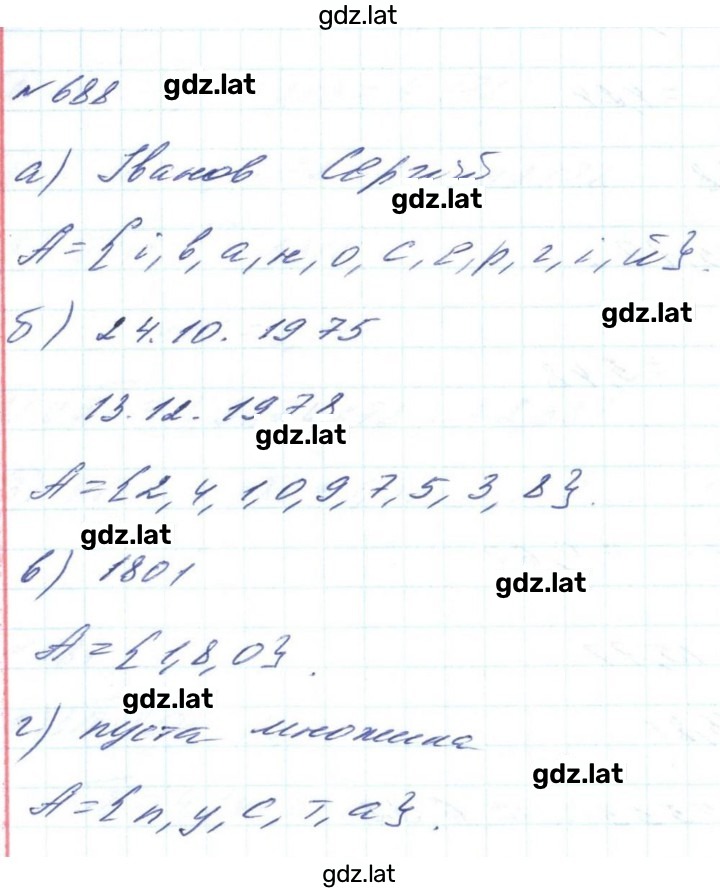 gdz.lat
№688 gdz.lat
а) Іванов Сергій
gdz.lat
А={і, в, а, н, о, с, е, р, г, і, й}.
gdz.lat
б) 24.10. 1975
13.12. 1978
gdz.lat
А={2, 4, 1, 0, 9, 7, 5, 3, 8}.
gdz.lat
в) 1801
gdz.lat
А={1, 8, 0}.
gdz.lat
г) пуста множина
gdz.lat
А={п, у, с, т, а}.
gdz.lat